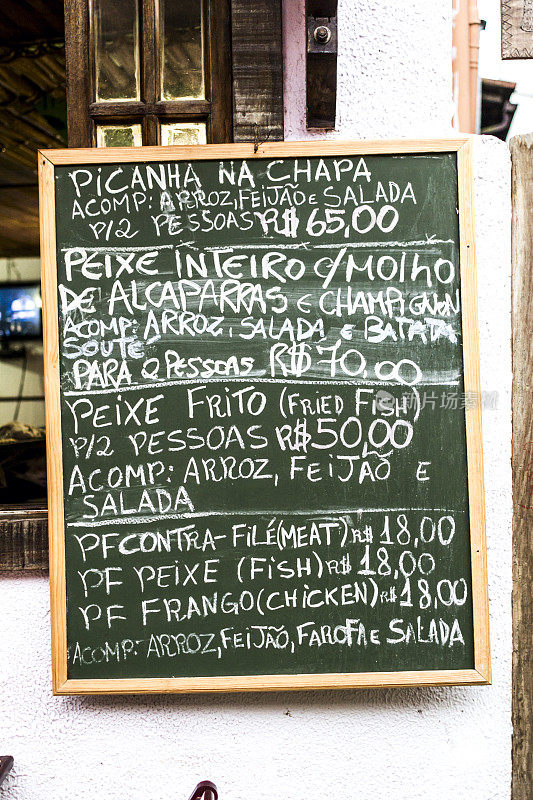 PICANHA NA CHAPA
ACOMP: ARROZ, FEIJÃO E SALADA
P/2 PESSOAS R$ 65,00
PEIXE INTEIRO C/ MOLHO
DE ALCAPARRAS E CHAMPIGNON
ACOMP: ARROZ, SALADA E BATATA
SOUTE
PARA 2 PESSOAS R$ 70,00
PEIXE FRITO (FRIED FISH)
P/2 PESSOAS R$ 50,00
ACOMP: ARROZ, FEIJÃO E
SALADA
PF CONTRA-FILÉ (MEAT) R$ 18,00
PF PEIXE (FISH) R$ 18,00
PF FRANGO (CHICKEN) R$ 18,00
ACOMP: ARROZ, FEIJÃO, FAROFA E SALADA